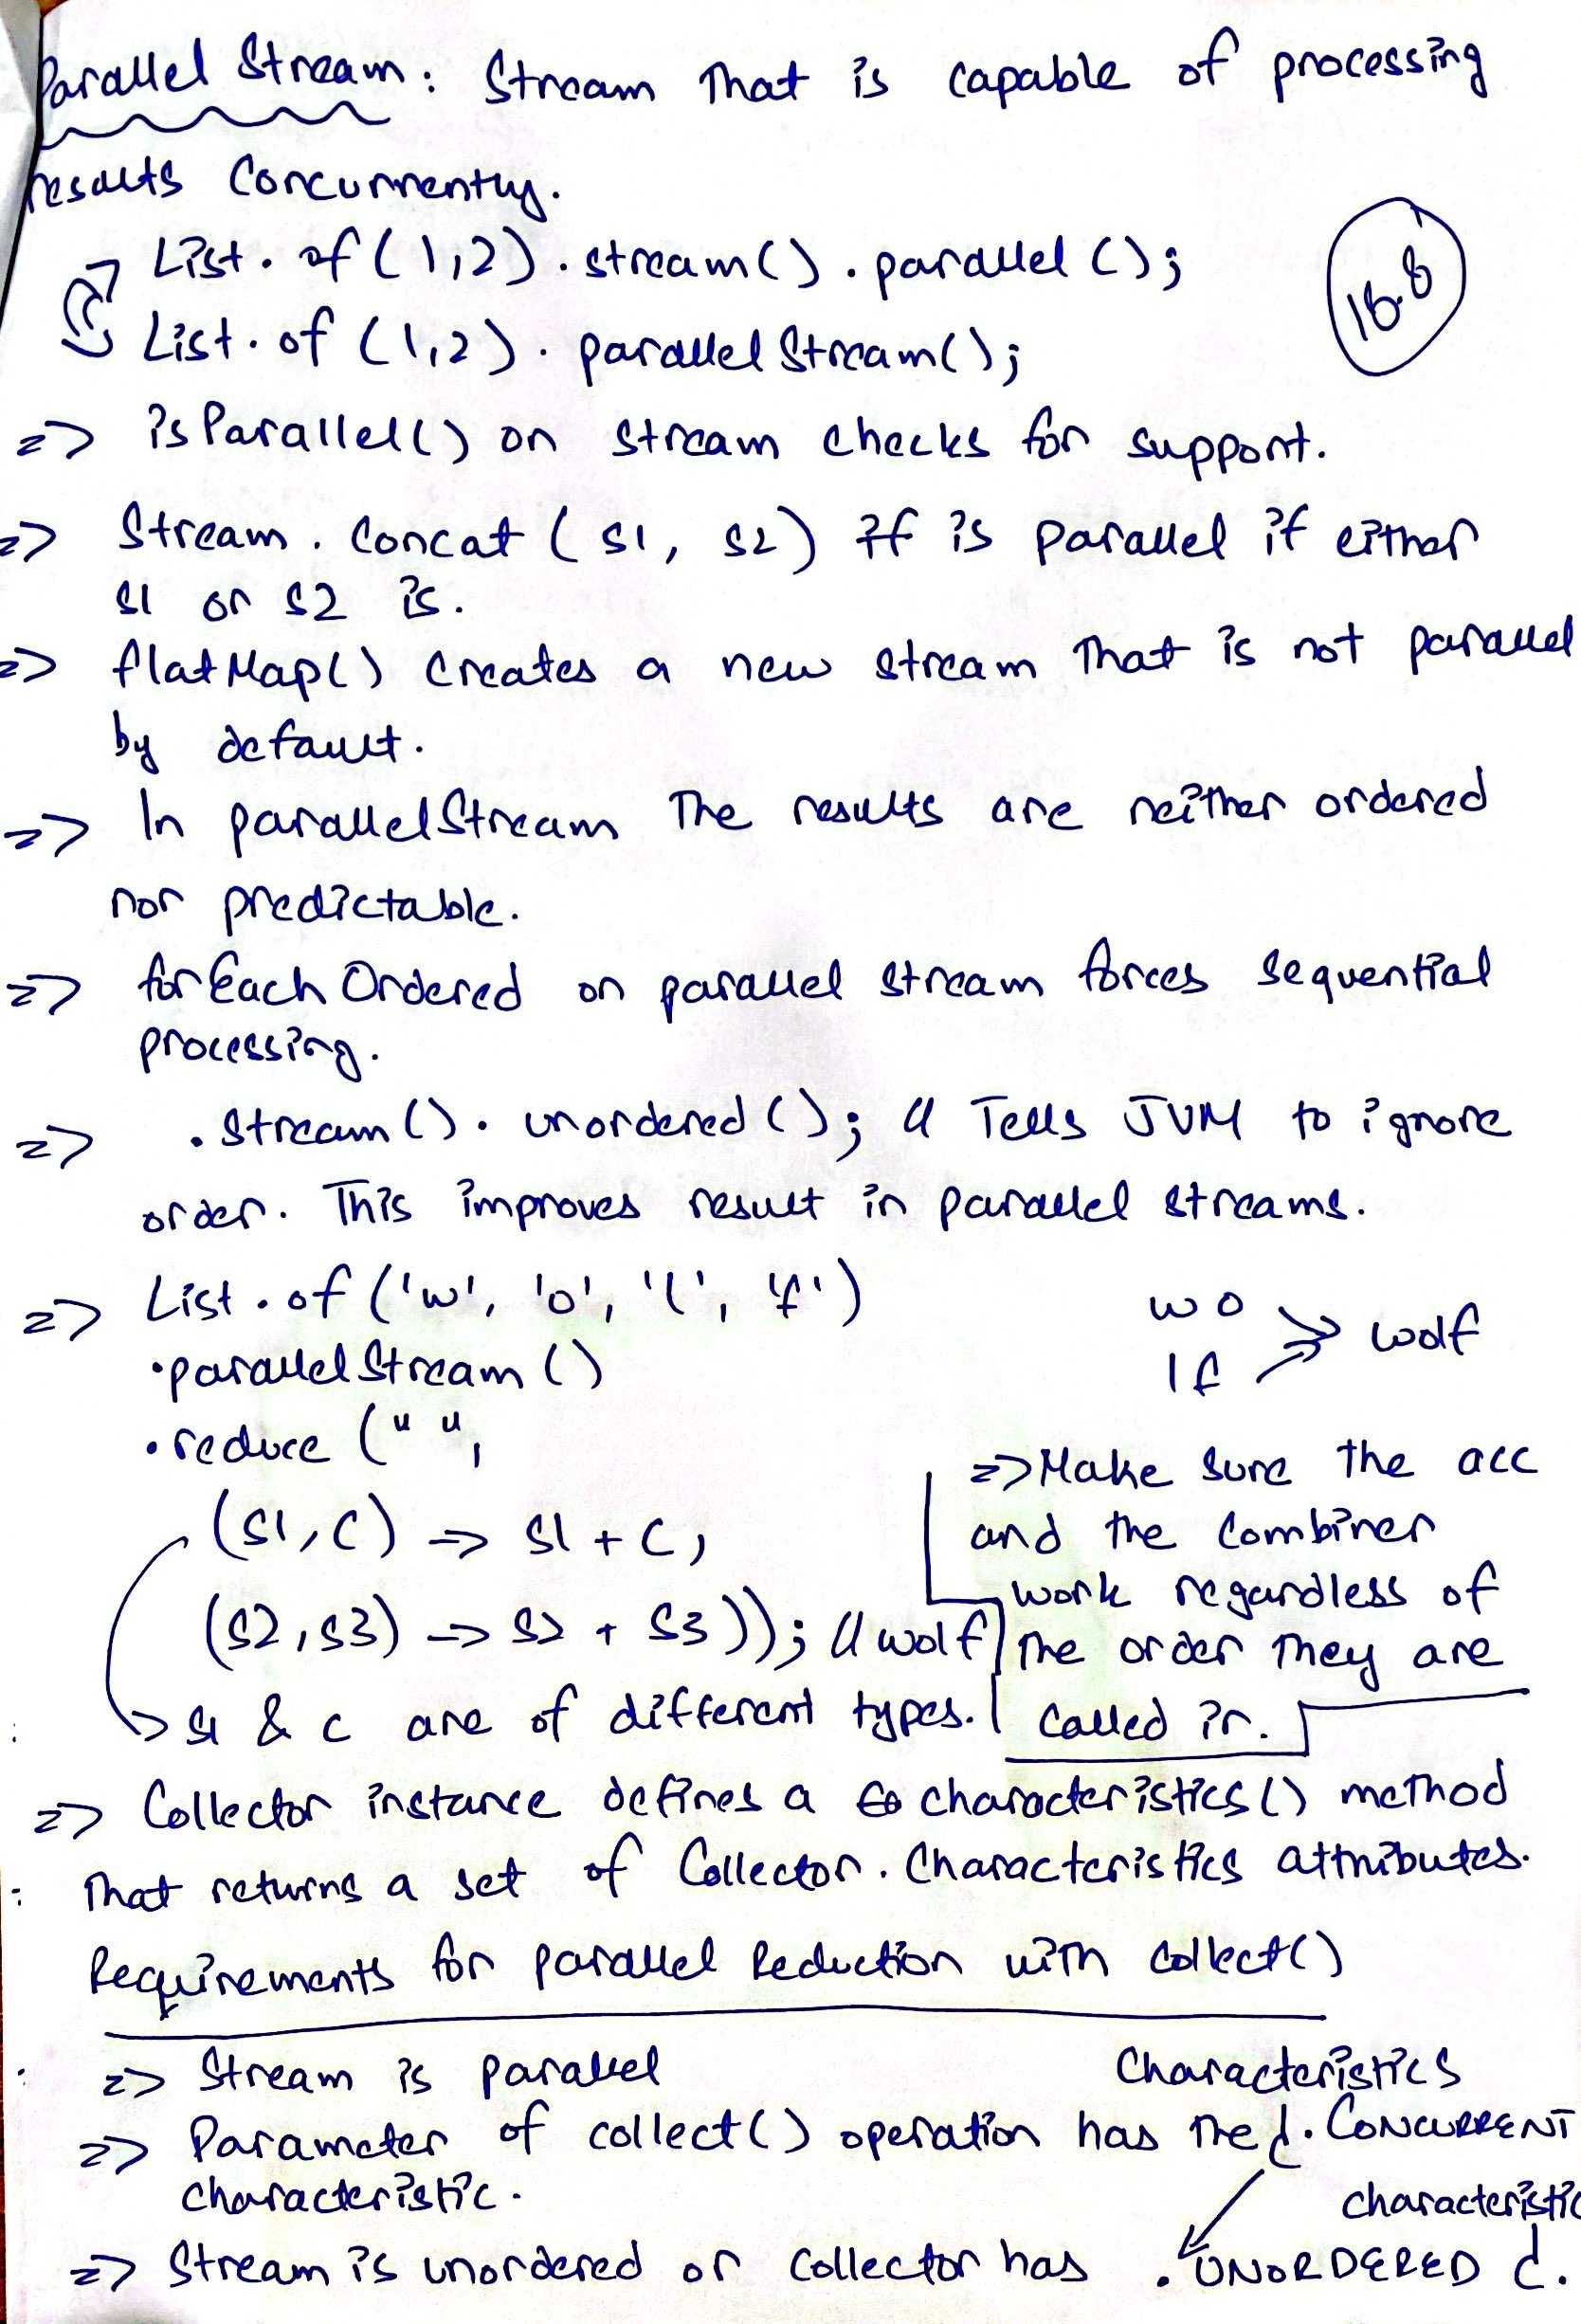 Parallel Stream: Stream that is capable of processing
results concurrently.
List.of(1,2).stream().parallel();
List.of(1,2).parallelStream();
18.8
=> isParallel() on stream checks for support.
=> Stream.concat(s1, s2) if is parallel if either
s1 or s2 is.
=> flatMap() creates a new stream that is not parallel
by default.
=> In parallelStream the results are neither ordered
nor predictable.
=> forEachOrdered on parallel stream forces sequential
processing.
=> .stream().unordered(); // Tells JVM to ignore
order. This improves result in parallel streams.
=> List.of('w', 'o', 'l', 'f')
.parallelStream()
.reduce("",
(s1,c) -> s1 + c,
(s2,s3) -> s2 + s3)); // wolf
s1 & c are of different types.
wo
lf >> wolf
=> Make sure the acc
and the combiner
work regardless of
the order they are
called in.
=> Collector instance defines a characteristics() method
that returns a set of Collector.Characteristics attributes.
Requirements for parallel Reduction with collect()
=> Stream is parallel
=> Parameter of collect() operation has the Characteristics.CONCURRENT
characteristic.
=> Stream is unordered or collector has .UNORDERED c.
characteristic